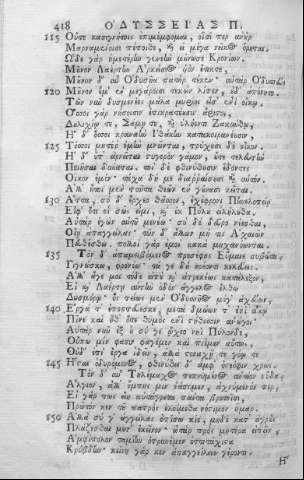 418 ὈΔΥΣΣΕΊΑΣ Π.
115 Οὔτε κασιγνήτοις ἐπιμέμφομαι, οἷσί περ ἀνὴρ
Μαρναμένοισι πέποιθε, καὶ εἰ μέγα νεῖκος ὄρηται.
Ὧδε γὰρ ἡμετέρην γενεὴν μούνωσε Κρονίων.
Μοῦνον Λαέρτην Ἀρκείσιος υἱὸν ἔτικτε,
Μοῦνον δ' αὖτ' Ὀδυσῆα πατὴρ τέκεν· αὐτὰρ Ὀδυσσεὺς
120 Μοῦνον ἔμ' ἐν μεγάροισι τεκὼν λίπεν, οὐδ' ἀπόνητο.
Τῷ νῦν δυσμενέες μάλα μυρίοι εἴσ' ἐνὶ οἴκῳ.
Ὅσσοι γὰρ νήσοισιν ἐπικρατέουσιν ἄριστοι,
Δουλιχίῳ τε, Σάμῃ τε, καὶ ὑλήεντι Ζακύνθῳ,
Ἠδ' ὅσσοι κραναὴν Ἰθάκην κατακοιρανέουσιν,
125 Τόσσοι μητέρ' ἐμὴν μνῶνται, τρύχουσι δὲ οἶκον.
Ἡ δ' οὔτ' ἀρνεῖται στυγερὸν γάμον, οὔτε τελευτὴν
Ποιῆσαι δύναται· τοὶ δὲ φθινύθουσιν ἔδοντες
Οἶκον ἐμόν· τάχα δή με διαρραίσουσι καὶ αὐτόν.
Ἀλλ' ἤτοι μὲν ταῦτα θεῶν ἐν γούνασι κεῖται.
130 Ἄττα, σὺ δ' ἔρχεο θᾶσσον, ἐχέφρονι Πηνελοπείῃ
Εἴφ' ὅτι οἱ σῶς εἰμὶ, καὶ ἐκ Πύλου εἰλήλουθα.
Αὐτὰρ ἐγὼν αὐτοῦ μενέω· σὺ δὲ δεῦρο νέεσθαι,
Οἴῃ ἀπαγγείλας· τῶν δ' ἄλλων μή τις Ἀχαιῶν
Πευθέσθω· πολλοὶ γὰρ ἐμοὶ κακὰ μηχανόωνται.
135 Τὸν δ' ἀπαμειβόμενος προσέφης Εὔμαιε συβῶτα·
Γιγνώσκω, φρονέω· τά γε δὴ νοέοντι κελεύεις.
Ἀλλ' ἄγε μοι τόδε εἰπὲ καὶ ἀτρεκέως κατάλεξον,
Εἰ καὶ Λαέρτῃ αὐτὴν ὁδὸν ἄγγελος ἔλθω
Δυσμόρῳ· ὃς τείως μὲν Ὀδυσσῆος μέγ' ἀχεύων,
140 Ἔργα τ' ἐποπτεύεσκε, μετὰ δμώων τ' ἐνὶ οἴκῳ
Πῖνε καὶ ἦσθ' ὅτε θυμὸς ἐνὶ στήθεσσιν ἀνώγοι·
Αὐτὰρ νῦν ἐξ οὗ σύ γε ᾤχεο νηῒ Πύλονδε,
Οὔπω μίν φασιν φαγέμεν καὶ πιέμεν αὔτως,
Οὐδ' ἐπὶ ἔργα ἰδεῖν, ἀλλὰ στοναχῇ τε γόῳ τε
145 Ἧσται ὀδυρόμενος, φθινύθει δ' ἀμφ' ὀστεόφι χρώς.
Τὸν δ' αὖ Τηλέμαχος πεπνυμένος ἀντίον ηὔδα,
Ἄλγιον, ἀλλ' ἔμπης μιν ἐάσομεν, ἀχνύμενοί περ,
Εἰ γάρ πως εἴη αὐτάγρετα πάντα βροτοῖσι,
Πρῶτόν κεν τοῦ πατρὸς ἑλοίμεθα νόστιμον ἦμαρ.
150 Ἀλλὰ σύ γ' ἀγγείλας ὀπίσω κίε, μηδὲ κατ' ἀγροὺς
Πλάζεσθαι μετ' ἐκεῖνον· ἀτὰρ πρὸς μητέρα εἰπεῖν,
Ἀμφίπολον ταμίην ὀτρυνέμεν ὅττι τάχιστα
Κρύβδην· κείνη γάρ κεν ἀπαγγείλειε γέροντι.
Ἡ